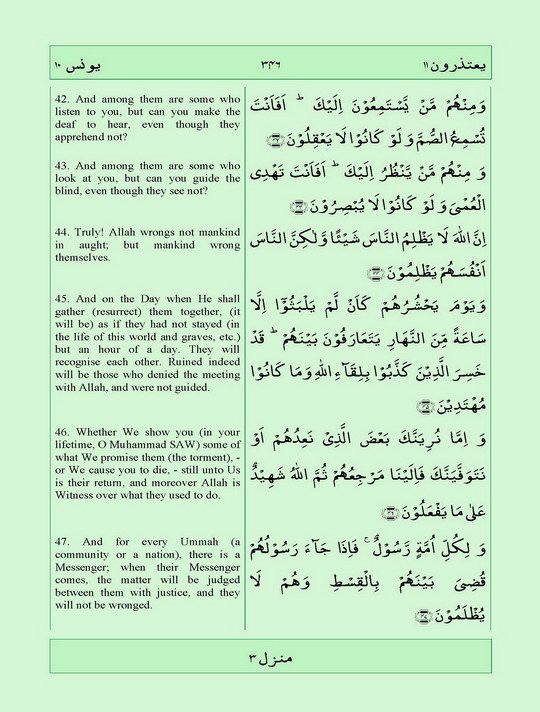 يونس ١٠ ٣٤٦ يعتذرون ١١
42. And among them are some who
listen to you, but can you make the
deaf to hear, even though they
apprehend not?
وَمِنْهُمْ مَّنْ يَّسْتَمِعُوْنَ اِلَيْكَ ؕ اَفَاَنْتَ
تُسْمِعُ الصُّمَّ وَ لَوْ كَانُوْا لَا يَعْقِلُوْنَ ﴿٤٢﴾
43. And among them are some who
look at you, but can you guide the
blind, even though they see not?
وَ مِنْهُمْ مَّنْ يَّنْظُرُ اِلَيْكَ ؕ اَفَاَنْتَ تَهْدِى
الْعُمْىَ وَ لَوْ كَانُوْا لَا يُبْصِرُوْنَ ﴿٤٣﴾
44. Truly! Allah wrongs not mankind
in aught; but mankind wrong
themselves.
اِنَّ اللّٰهَ لَا يَظْلِمُ النَّاسَ شَيْئًا وَّلٰكِنَّ النَّاسَ
اَنْفُسَهُمْ يَظْلِمُوْنَ ﴿٤٤﴾
45. And on the Day when He shall
gather (resurrect) them together, (it
will be) as if they had not stayed (in
the life of this world and graves, etc.)
but an hour of a day. They will
recognise each other. Ruined indeed
will be those who denied the meeting
with Allah, and were not guided.
وَيَوْمَ يَحْشُرُهُمْ كَاَنْ لَّمْ يَلْبَثُوْۤا اِلَّا
سَاعَةً مِّنَ النَّهَارِ يَتَعَارَفُوْنَ بَيْنَهُمْ ؕ قَدْ
خَسِرَ الَّذِيْنَ كَذَّبُوْا بِلِقَآءِ اللّٰهِ وَمَا كَانُوْا
مُهْتَدِيْنَ ﴿٤٥﴾
46. Whether We show you (in your
lifetime, O Muhammad SAW) some of
what We promise them (the torment), -
or We cause you to die, - still unto Us
is their return, and moreover Allah is
Witness over what they used to do.
وَ اِمَّا نُرِيَنَّكَ بَعْضَ الَّذِىْ نَعِدُهُمْ اَوْ
نَتَوَفَّيَنَّكَ فَاِلَيْنَا مَرْجِعُهُمْ ثُمَّ اللّٰهُ شَهِيْدٌ
عَلٰى مَا يَفْعَلُوْنَ ﴿٤٦﴾
47. And for every Ummah (a
community or a nation), there is a
Messenger; when their Messenger
comes, the matter will be judged
between them with justice, and they
will not be wronged.
وَ لِكُلِّ اُمَّةٍ رَّسُوْلٌ ۚ فَاِذَا جَآءَ رَسُوْلُهُمْ
قُضِىَ بَيْنَهُمْ بِالْقِسْطِ وَهُمْ لَا
يُظْلَمُوْنَ ﴿٤٧﴾
منزل ٣